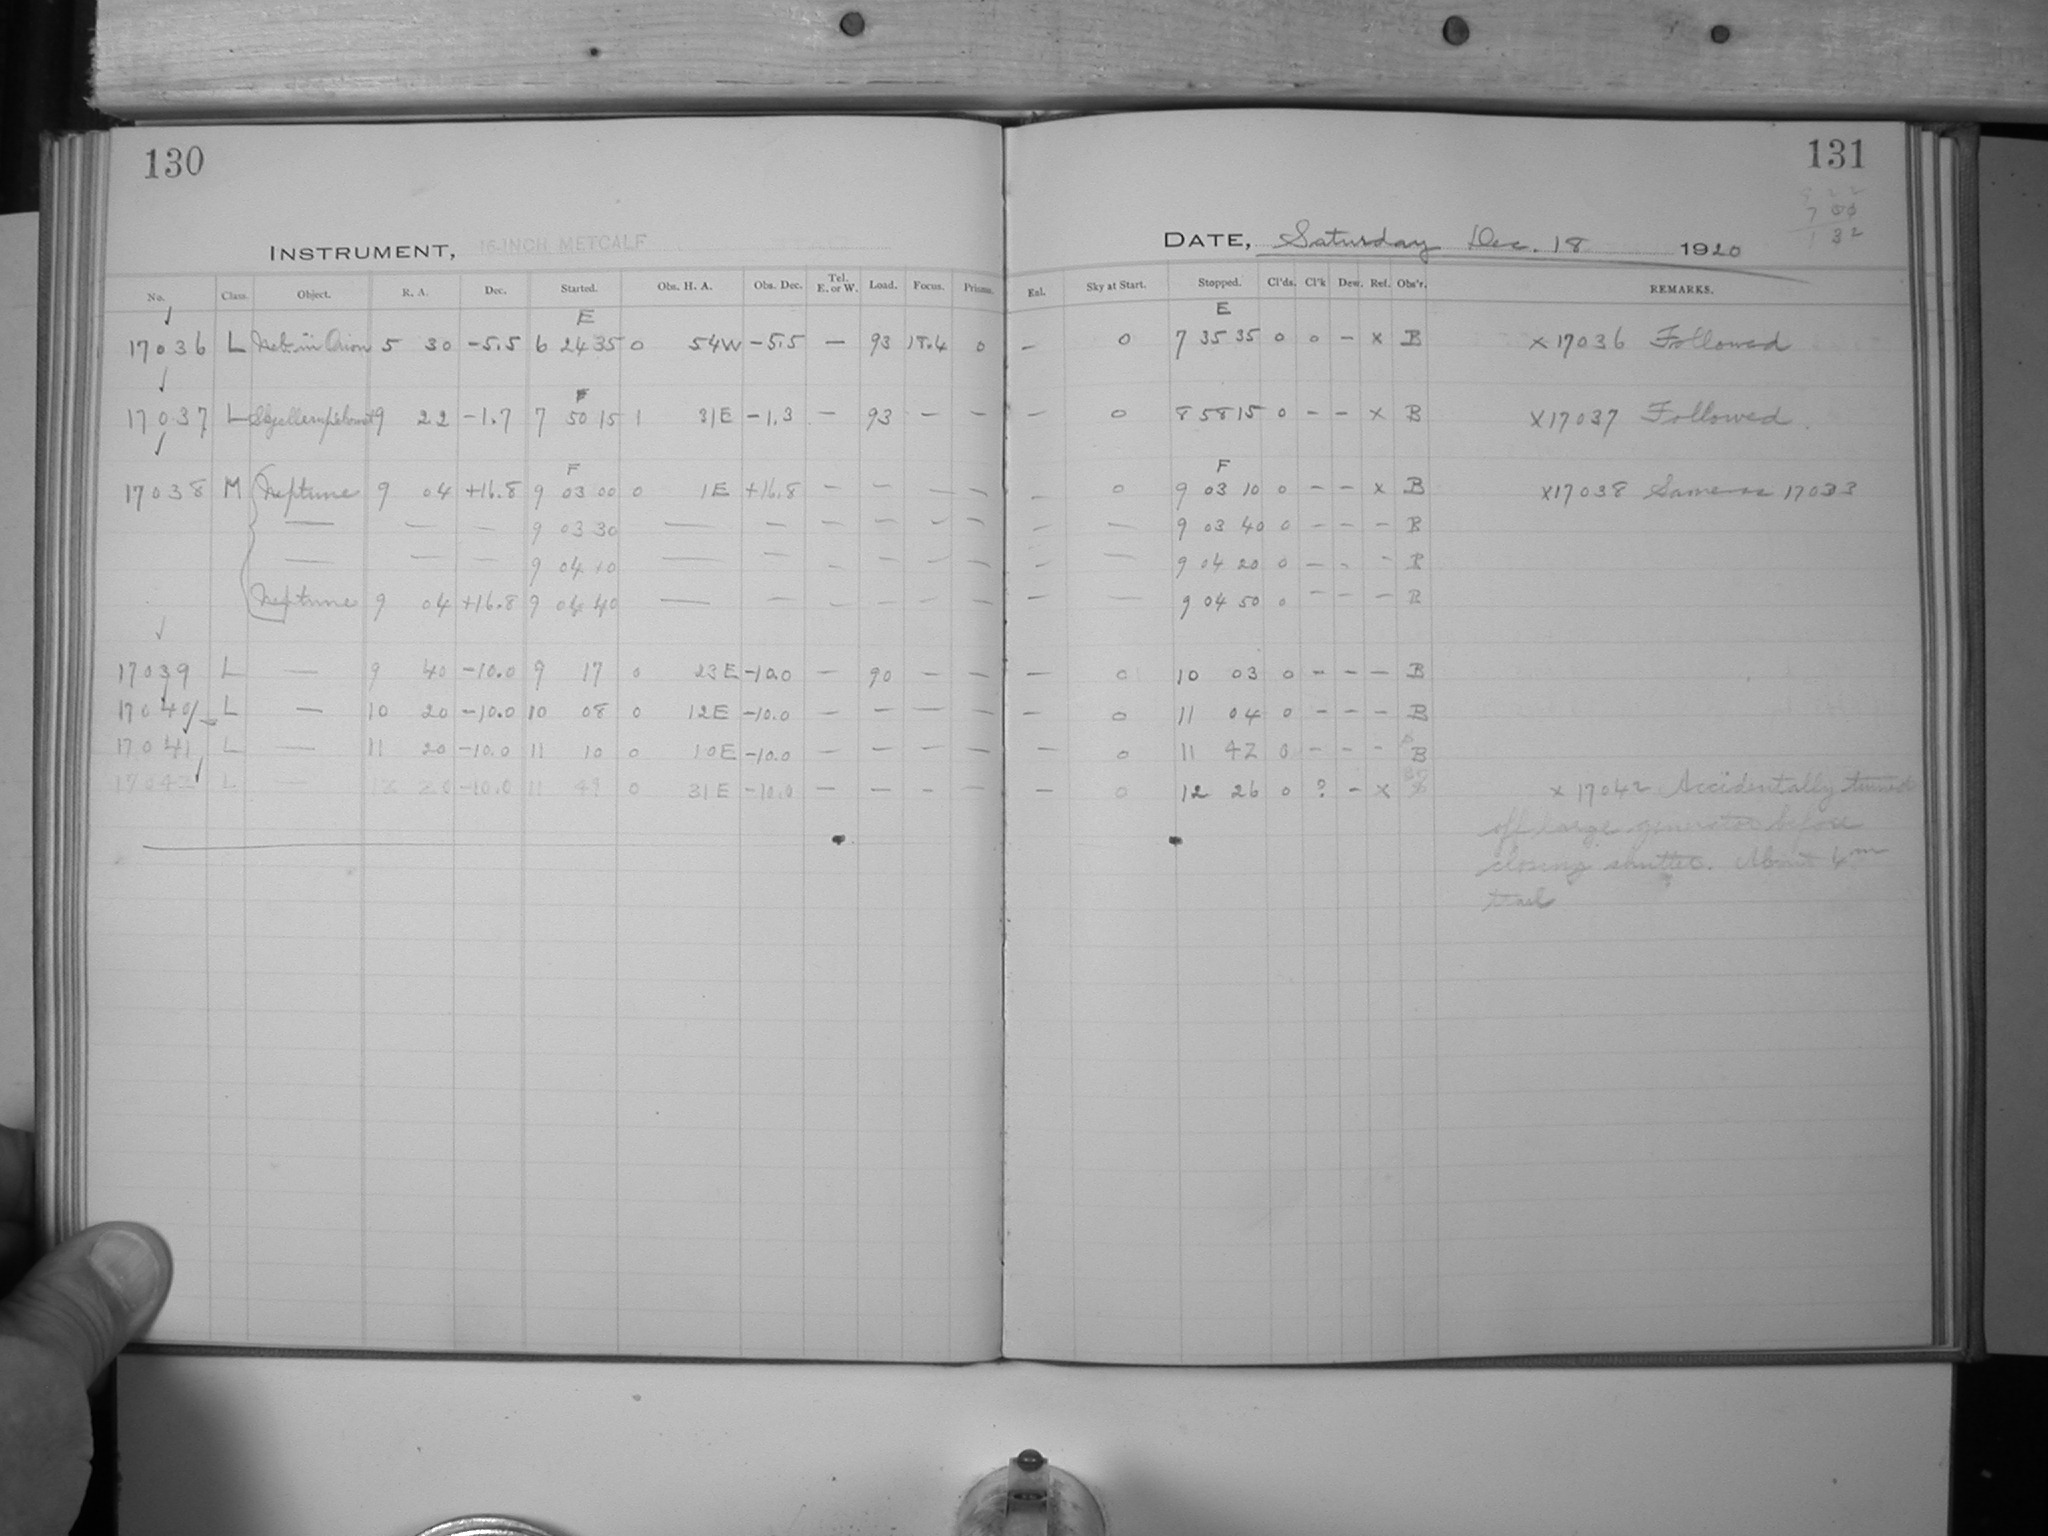 130
INSTRUMENT, 16-INCH METCALF
No. Class. Object. R. A. Dec. Started. Obs. H. A. Obs. Dec. Tel. E. or W. Load. Focus. Prisms.
E
17036 L Neb. in Orion 5 30 -5.5 6 24 35 0 54W -5.5 — 93 18.4 0
17037 L 9 22 -1.7 7 50 15 1 31E -1.3 — 93 — —
F
17038 M Neptune 9 04 +16.8 9 03 00 0 1E +16.8 — — — —
— — — 9 03 30 — — — — — —
— — — 9 04 10 — — — — — —
Neptune 9 04 +16.8 9 04 40 — — — — — —
17039 L — 9 40 -10.0 9 17 0 23E -10.0 — 90 — —
17040 L — 10 20 -10.0 10 08 0 12E -10.0 — — — —
17041 L — 11 20 -10.0 11 10 0 10E -10.0 — — — —
17042 L — 12 20 -10.0 11 49 0 31E -10.0 — — — —
131
DATE, Saturday Dec. 18 1920
7
1 32
Exl. Sky at Start. Stopped. Cl'ds. Cl'k Dew. Ref. Obs'r. REMARKS.
E
— 0 7 35 35 0 0 — x B x 17036 Followed
— 0 8 58 15 0 — — x B x 17037 Followed.
F
— 0 9 03 10 0 — — x B x 17038 Same as 17033
— — 9 03 40 0 — — — B
— — 9 04 20 0 — — — B
— — 9 04 50 0 — — — B
— 0 10 03 0 — — — B
— 0 11 04 0 — — — B
— 0 11 42 0 — — — B
— 0 12 26 0 ? — x x 17042 Accidentally turned
off large generator before
closing shutter. About 4m
trail